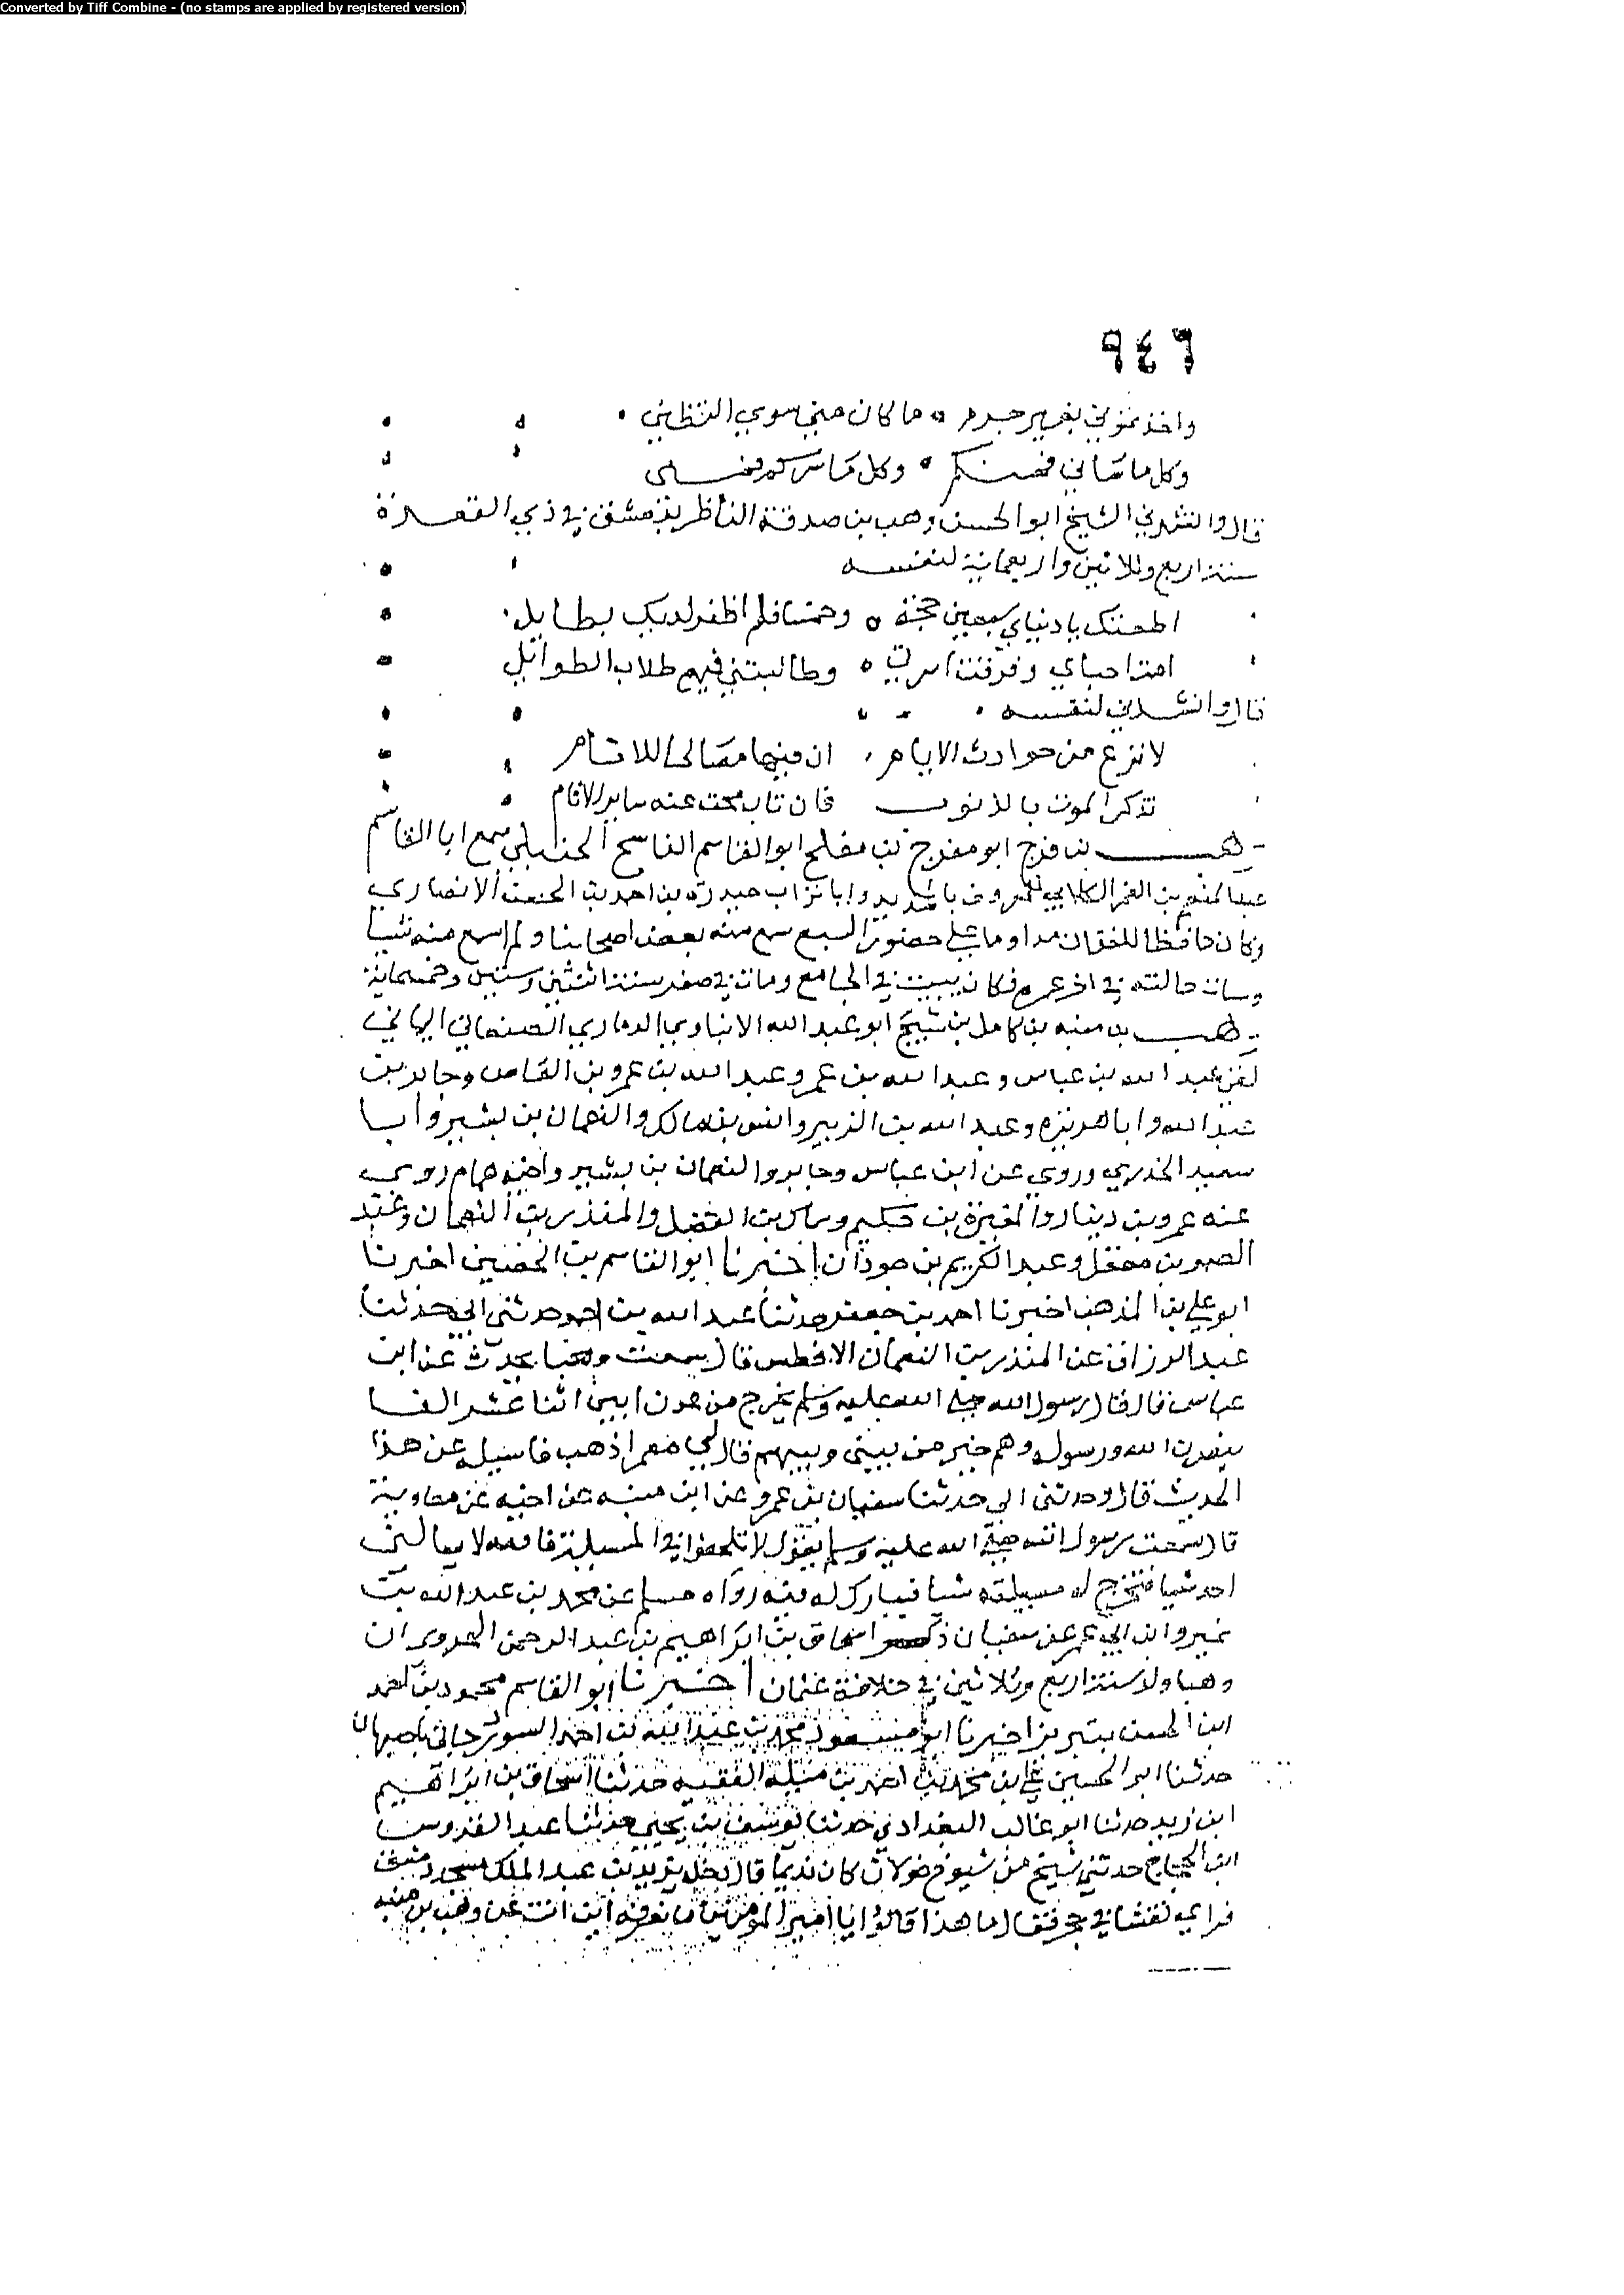 Converted by Tiff Combine - (no stamps are applied by registered version)
٩٤٦
واخذتموني بغير جرم ما كان مني سوي التظني
وكل ما ساني فمنكم وكل ما سركم فمني
قال وانشدني الشيخ ابو الحسن وهب بن صدقة الناظر بدمشق في ذي القعدة
سنة اربع وثلاثين واربعماية لنفسه
اطعتك يا دنياي سبعين حجة وخمسا فلم اظفر لديك بطايل
امت احباي وفرقت اسرتي وطالبتني فيهم طلاب الطوائل
قال وانشدني لنفسه
لا تزع من حوادث الايام ان فيها مصالحا للانام
تذكر الموت بالذنوب فان تاب محت عنه ساير الاثام
وهب بن فرج ابو مفرج بن مفلح ابو القاسم الناسخ الحنبلي سمع ابا القاسم
عبد المنعم بن الغمر الكلابي المعروف بالمديد وابا تراب حيدرة بن احمد بن الحسن الانصاري
وكان حافظا للختان مداوما علي حضور السبع سمع منه بعض اصحابنا ولم اسمع منه شيا
وسات حالته في اخر عمره فكان يبيت في الجامع ومات في صفر سنة اثنتين وستين وخمسماية
وهب بن منبه بن كامل بن شيخ ابو عبد الله الابناوي الدماري الصنعاني اليماني
لقي عبد الله بن عباس وعبد الله بن عمر وعبد الله بن عمرو بن القاص وجابر بن
عبد الله وابا هريرة وعبد الله بن الزبير وانس بن مالك والنعمان بن بشير وابا
سعيد الخدري وروي عن ابن عباس وجابر والنعمان بن بشير واخيه همام روي
عنه عمرو بن دينار والمغيرة بن حكيم وسماك بن الفضل والمنذر بن النعمان وعبد
الصمد بن معقل وعبد الكريم بن حوذان اخبرنا ابو القاسم بن الحصين اخبرنا
ابو علي بن المذهب اخبرنا احمد بن جعفر حدثنا عبد الله بن احمد حدثني ابي حدثنا
عبد الرزاق عن المنذر بن النعمان الافطس قال سمعت وهبا يحدث عن ابن
عباس قال قال رسول الله صلى الله عليه وسلم يخرج من عدن ابين اثنا عشر الفا
ينصرن الله ورسوله وهم خير من بيني وبينهم قال لي معمر اذهب فاسيله عن هذا
الحديث قال وحدثني ابي حدثنا سفيان بن عمرو عن ابن منبه عن اخيه عن معاوية
قال سمعت رسول الله صلى الله عليه وسلم يقول لا تلحفوا في المسيلة فانه لا يسالني
احد شيا فتخرج له مسيلته شيا فيبارك له فيه رواه مسلم عن محمد بن عبد الله بن
نمير وابن ابي عمر عن سفيان ذكر اسحاق بن ابراهيم بن عبد الرحمن الهروي ان
وهبا ولد سنة اربع وثلاثين في خلافة عثمان اخبرنا ابو القاسم محمود بن احمد
ابن الحسن بتبريز اخبرنا ابو مسعود محمد بن عبد الله بن احمد السوذرجاني باصبهان
حدثنا ابو الحسين علي بن محمد بن احمد بن ميلة الفقيه حدثنا اسحاق بن ابراهيم
ابن زيد حدثنا ابو غالب البغدادي حدثنا يوسف بن يحيي حدثنا عبد القدوس
ابن الحجاج حدثني شيخ من شيوخ خولان كان نديما قال دخل يزيد بن عبد الملك مسجد دمشق
فراي نقشا في حجر فقال ما هذا قالوا يا امير المومنين ما نعرفه اين انت عن وهب بن منبه